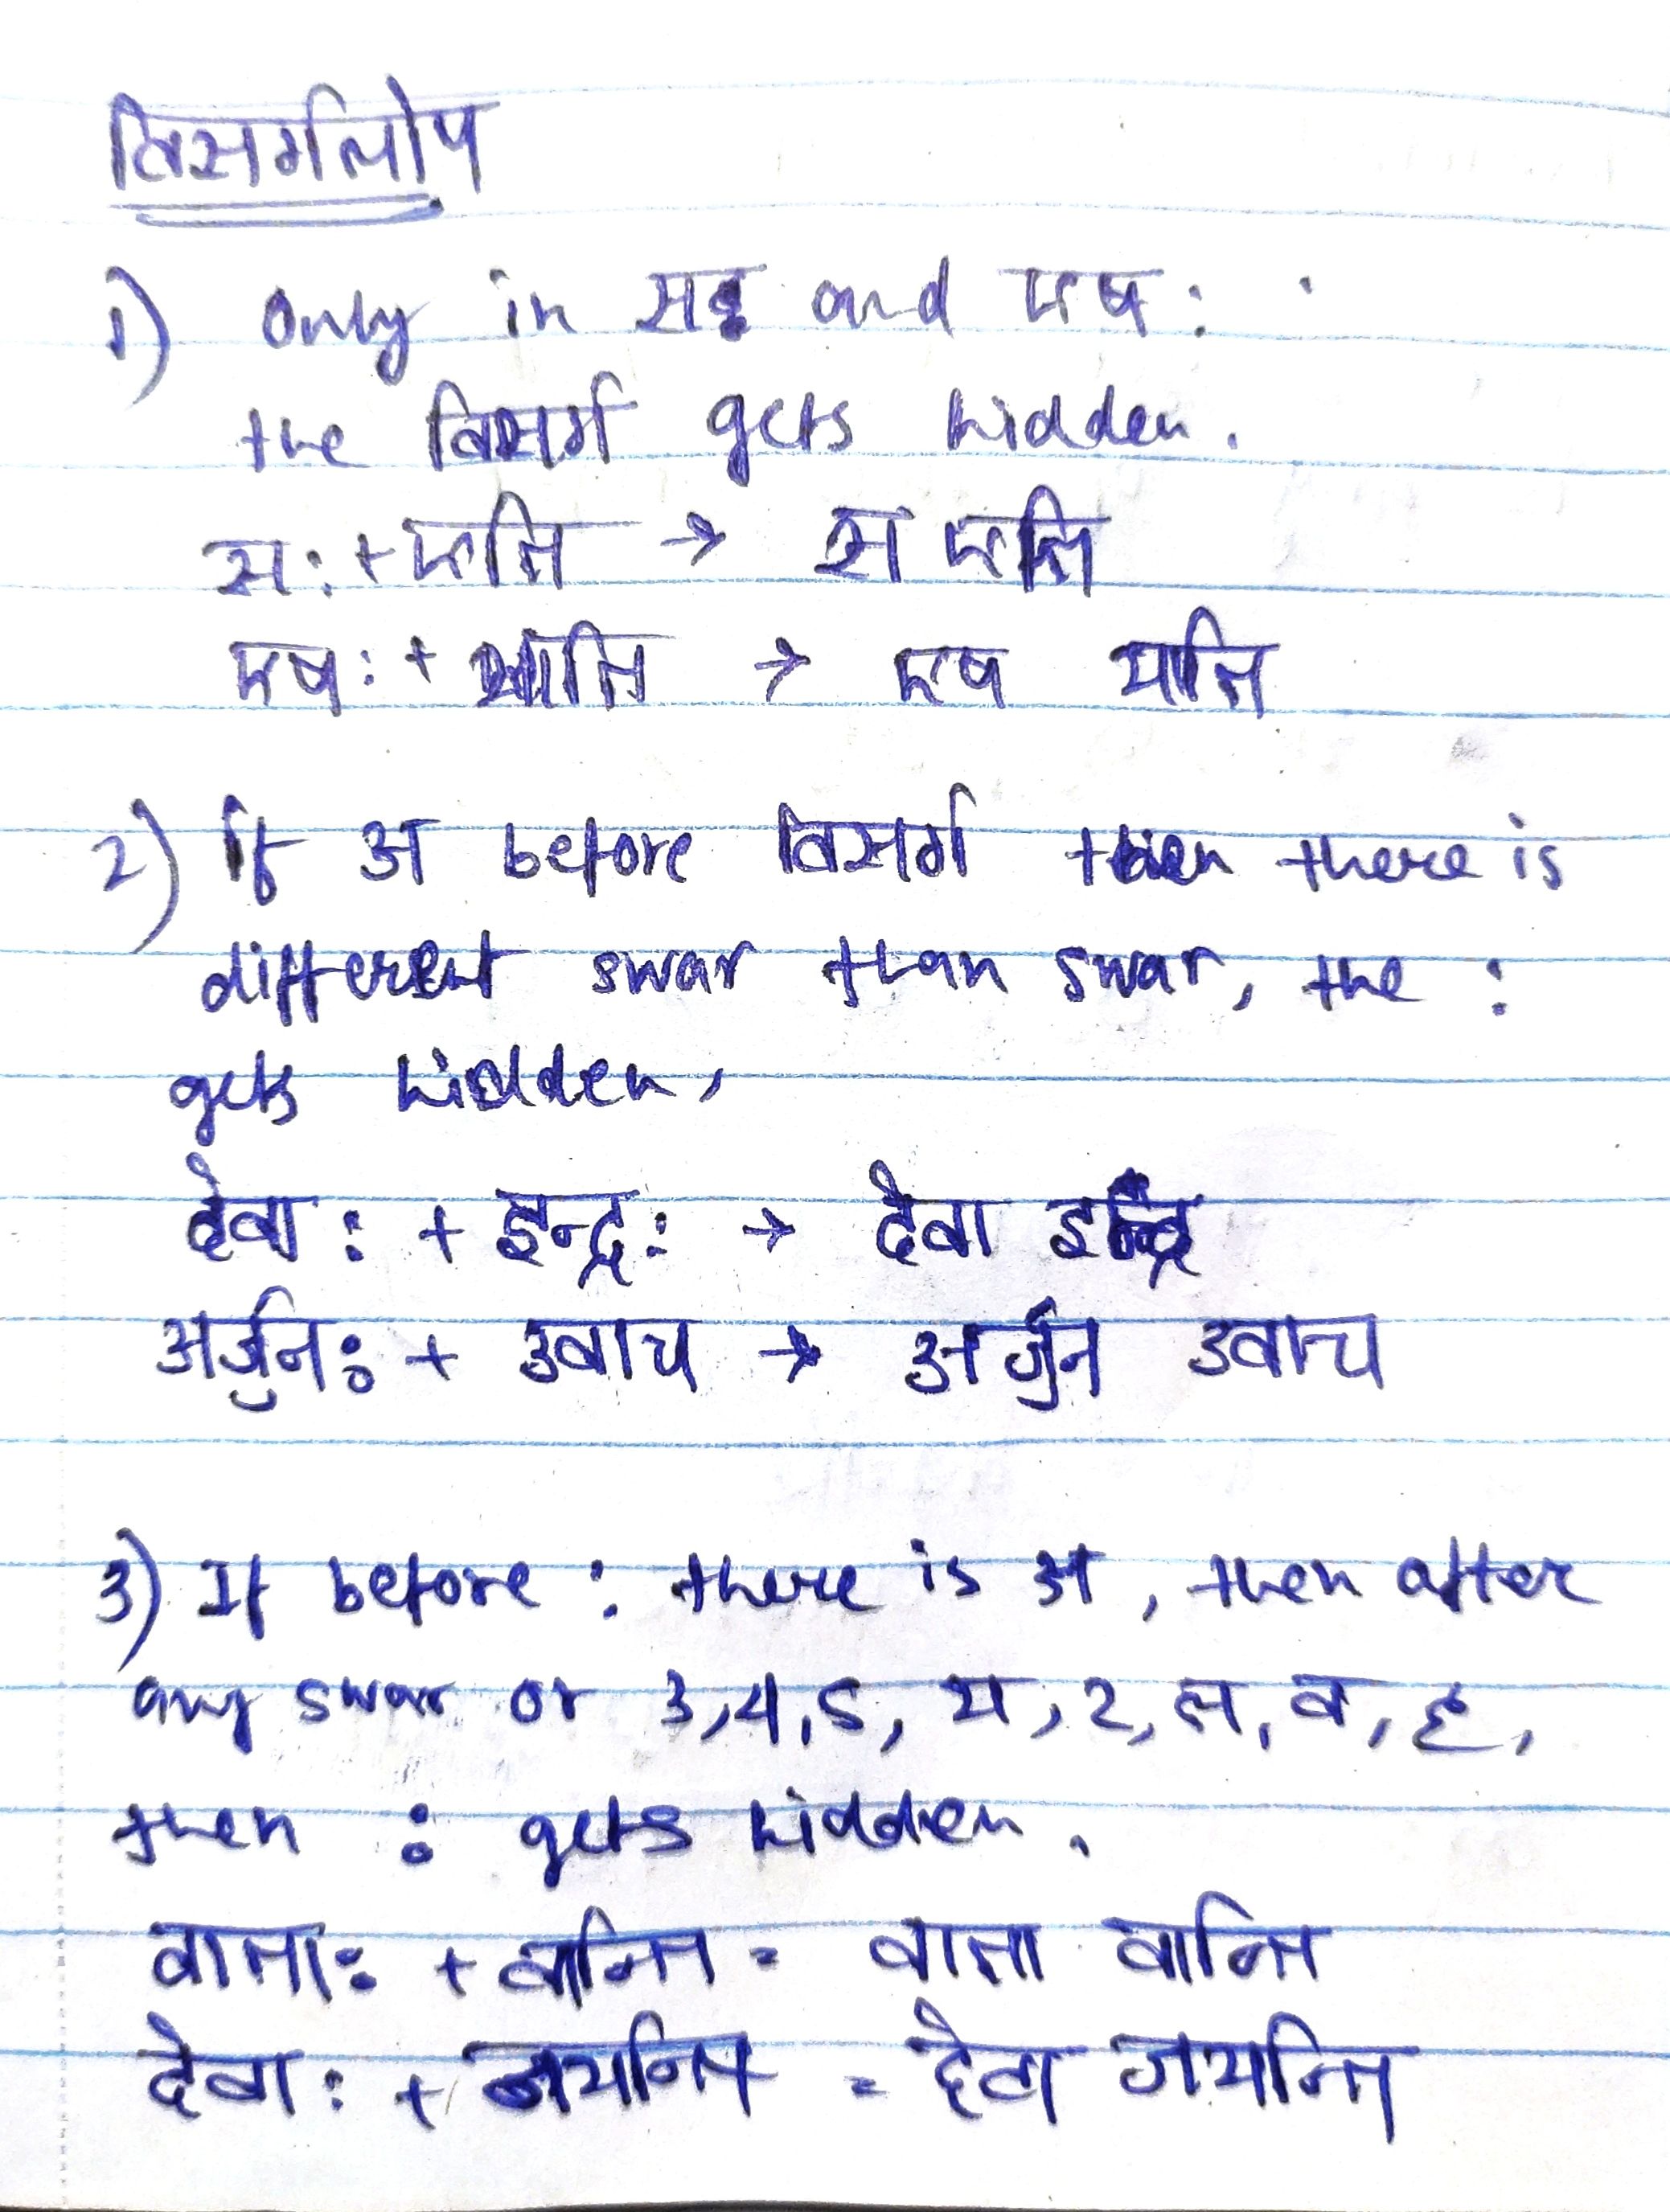 विसर्गलोप
1) Only in सः and एष:
the विसर्ग gets hidden.
स: + एति → स एति
एष: + याति → एष याति
2) If अ before विसर्ग then there is
different swar than swar, the :
gets hidden,
देवा: + इन्द्र: → देवा इन्द्र
अर्जुन: + उवाच → अर्जुन उवाच
3) If before : there is अ, then after
any swar or 3, 4, 5, य, र, ल, व, ह,
then : gets hidden.
वाता: + वान्ति = वाता वान्ति
देवा: + जयन्ति = देवा जयन्ति